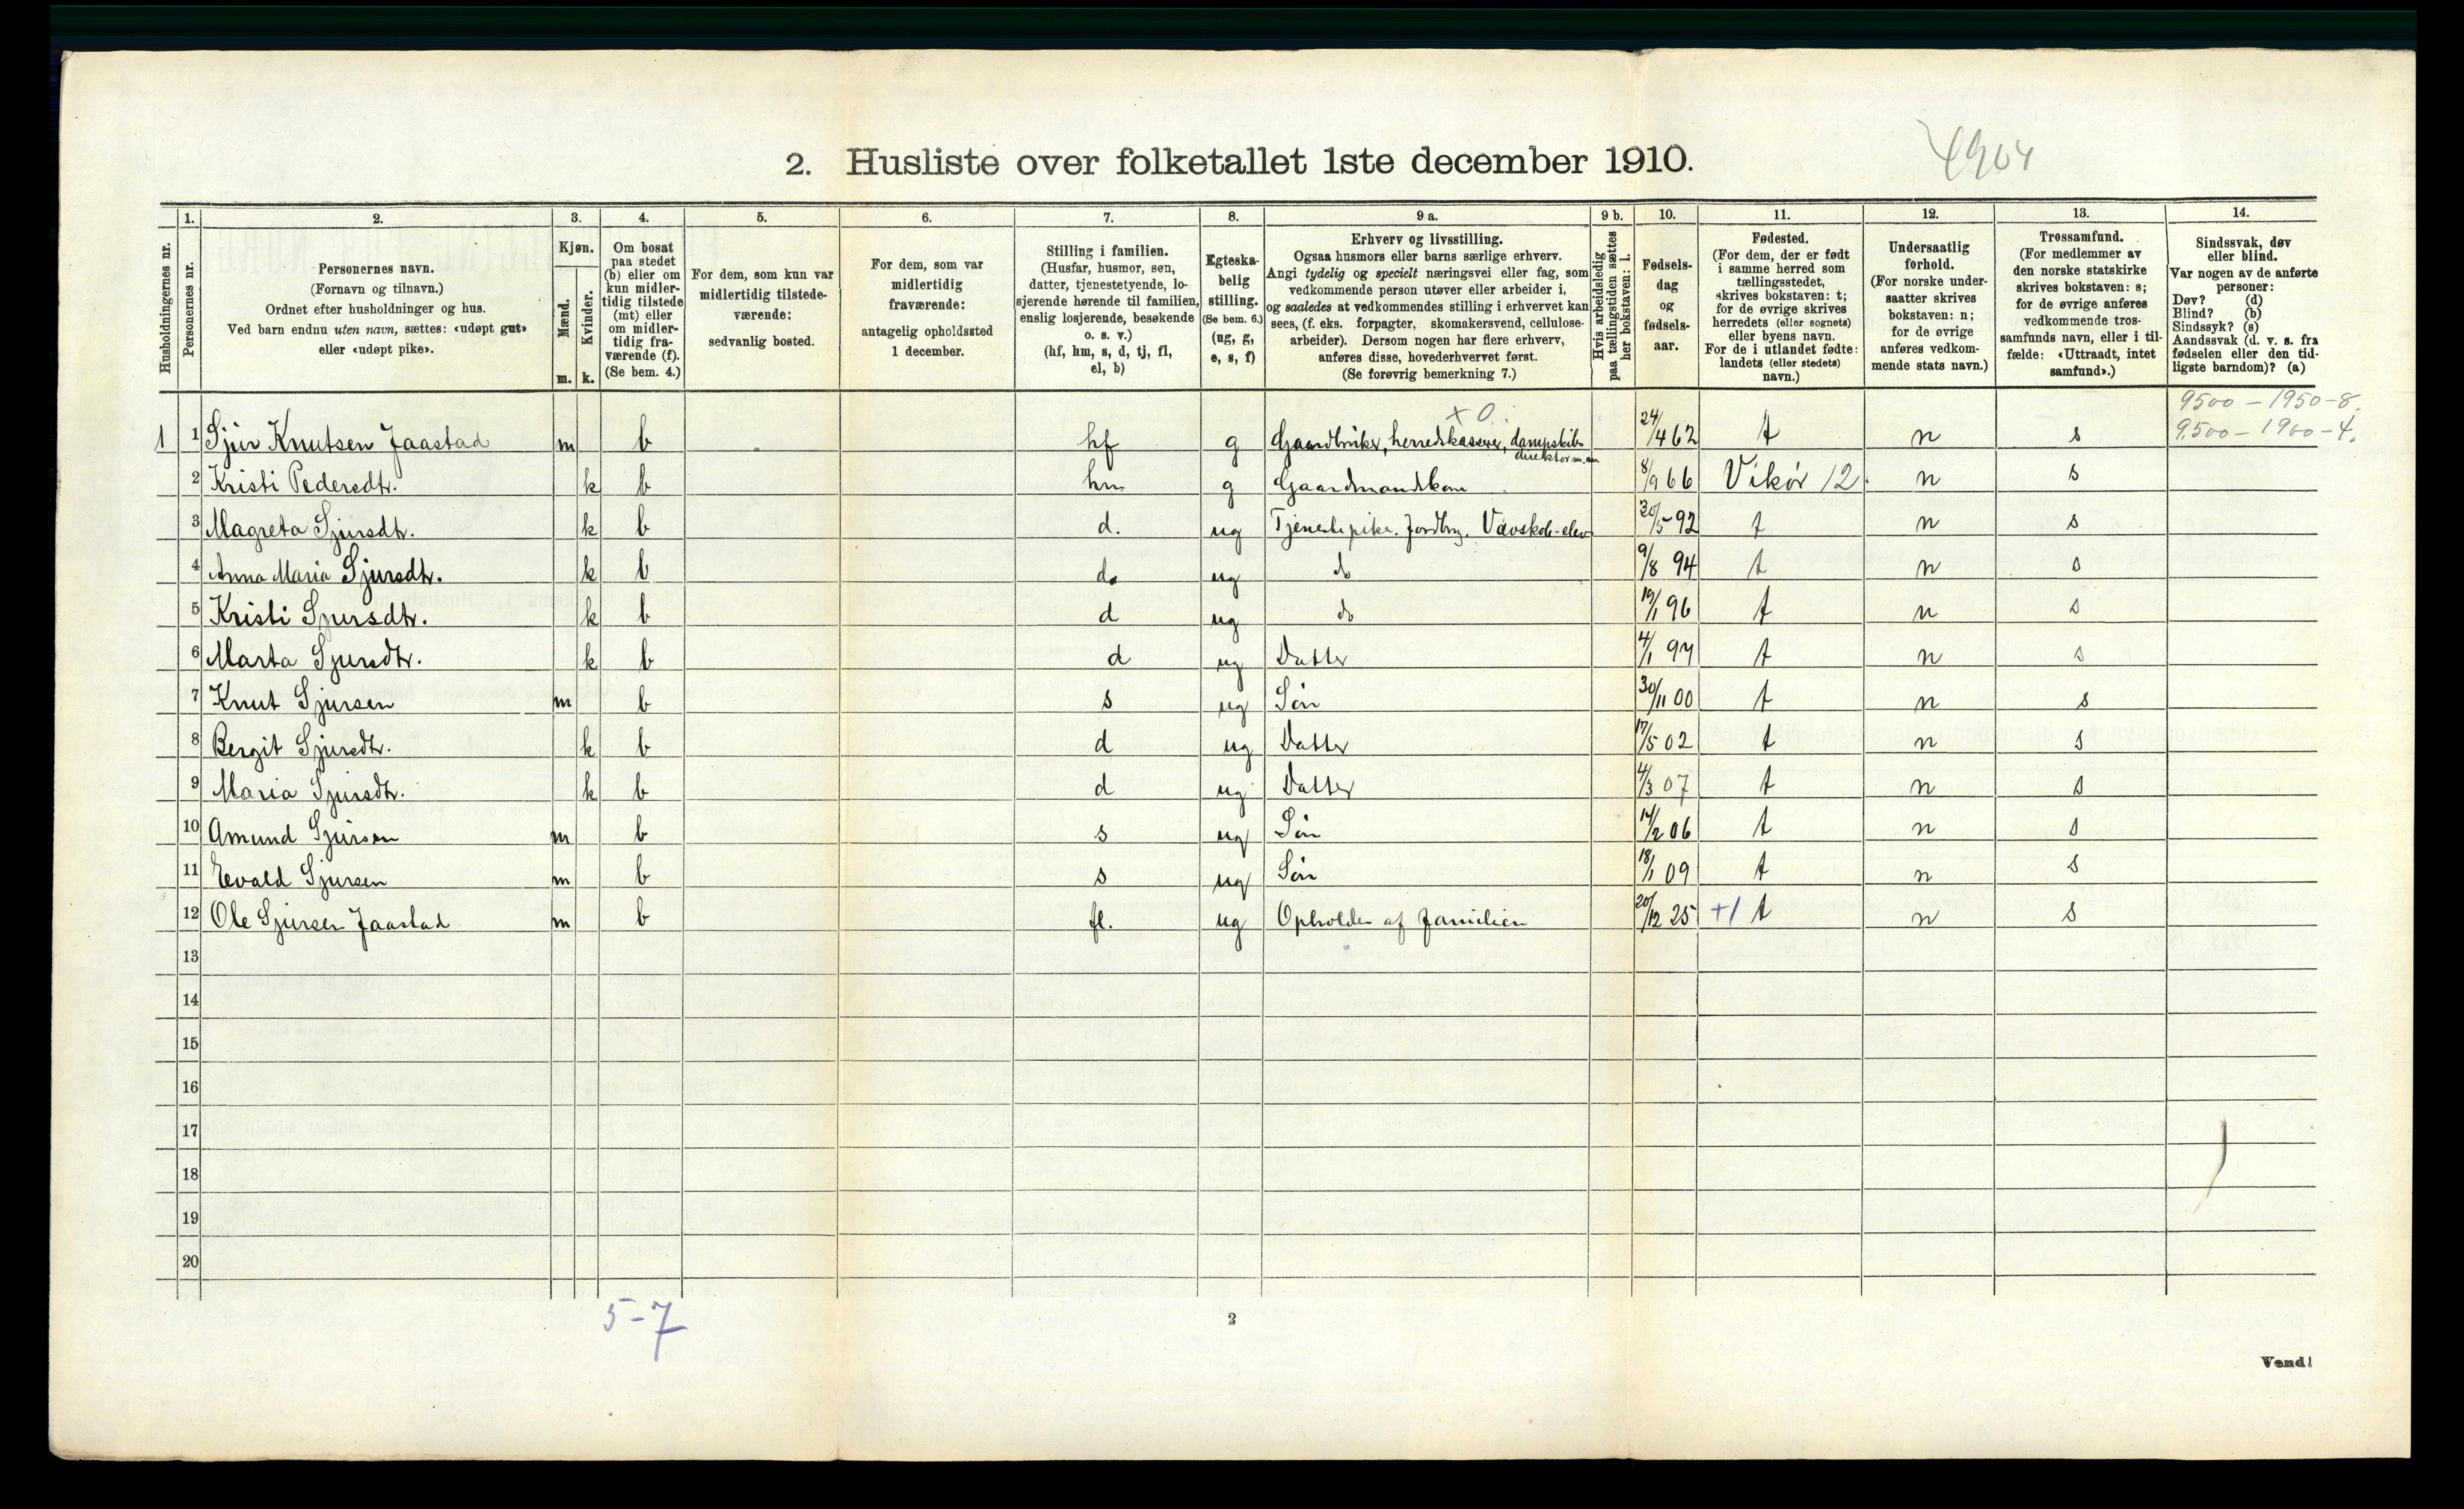 4904
2. Husliste over folketallet 1ste december 1910.
Husholdningernes nr.
1. Personernes nr.
2. Personernes navn.
(Fornavn og tilnavn.)
Ordnet efter husholdninger og hus.
Ved barn endnu uten navn, sættes: «udøpt gut»
eller «udøpt pike».
3. Kjøn.
Mænd. m.
Kvinder. k.
4. Om bosat
paa stedet
(b) eller om
kun midler-
tidig tilstede
(mt) eller
om midler-
tidig fra-
værende (f).
(Se bem. 4.)
5. For dem, som kun var
midlertidig tilstede-
værende:
sedvanlig bosted.
6. For dem, som var
midlertidig
fraværende:
antagelig opholdssted
1 december.
7. Stilling i familien.
(Husfar, husmor, søn,
datter, tjenestetyende, lo-
sjerende hørende til familien,
enslig losjerende, besøkende
o. s. v.)
(hf, hm, s, d, tj, fl,
el, b)
8. Egteska-
belig
stilling.
(Se bem. 6.)
(ug, g,
e, s, f)
9 a. Erhverv og livsstilling.
Ogsaa husmors eller barns særlige erhverv.
Angi tydelig og specielt næringsvei eller fag, som
vedkommende person utøver eller arbeider i,
og saaledes at vedkommendes stilling i erhvervet kan
sees, (f. eks. forpagter, skomakersvend, cellulose-
arbeider). Dersom nogen har flere erhverv,
anføres disse, hovederhvervet først.
(Se forøvrig bemerkning 7.)
9 b. Hvis arbeidsledig
paa tællingstiden sættes
her bokstaven: l.
10. Fødsels-
dag
og
fødsels-
aar.
11. Fødested.
(For dem, der er født
i samme herred som
tællingsstedet,
skrives bokstaven: t;
for de øvrige skrives
herredets (eller sognets)
eller byens navn.
For de i utlandet fødte:
landets (eller stedets)
navn.)
12. Undersaatlig
forhold.
(For norske under-
saatter skrives
bokstaven: n;
for de øvrige
anføres vedkom-
mende stats navn.)
13. Trossamfund.
(For medlemmer av
den norske statskirke
skrives bokstaven: s;
for de øvrige anføres
vedkommende tros-
samfunds navn, eller i til-
fælde: «Uttraadt, intet
samfund».)
14. Sindssvak, døv
eller blind.
Var nogen av de anførte
personer:
Døv? (d)
Blind? (b)
Sindssyk? (s)
Aandssvak (d. v. s. fra
fødselen eller den tid-
ligste barndom)? (a)
x 0. 9500 - 1950-8.
1 1 Sjur Knutsen Jaastad m b hf g Gaardbruker, herredskasserer, dampskibs 24/4 62 t n s 9500 - 1900-4.
2 Kristi Pedersdtr. k b hm g Gaardmandskone 8/9 66 Vikør 12. n s
3 Magreta Sjursdtr. k b d. ug Tjenestepike. Jordbrg. Vævskole-elev 30/5 92 t n s
4 Anna Maria Sjursdtr. k b d. ug do 9/8 94 t n s
5 Kristi Sjursdtr. k b d ug do 19/1 96 t n s
6 Marta Sjursdtr. k b d ug Datter 4/1 97 t n s
7 Knut Sjursen m b s ug Søn 30/11 00 t n s
8 Bergit Sjursdtr. k b d ug Datter 17/5 02 t n s
9 Maria Sjursdtr. k b d ug Datter 4/3 07 t n s
10 Amund Sjursen m b s ug Søn 14/2 06 t n s
11 Evald Sjursen m b s ug Søn 18/1 09 t n s
12 Ole Sjursen Jaastad m b fl. ug Opholdes af familien 20/12 25 +1 t n s
13
14
15
16
17
18
19
20
5-7
2
Vend!